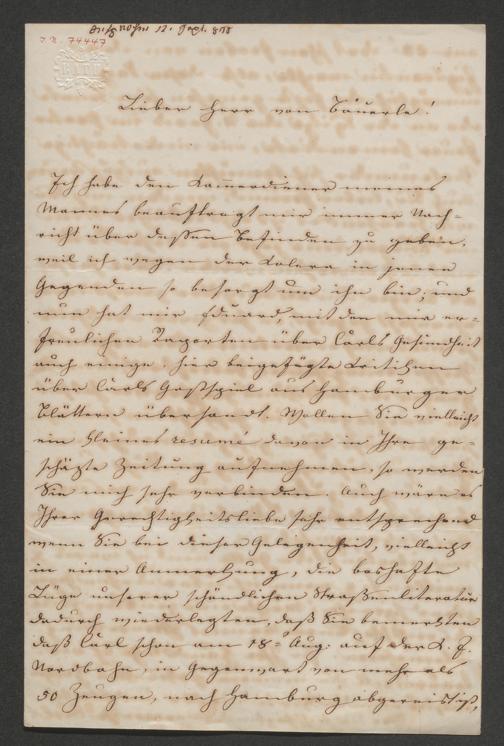 J. N. 74447
BATH
Lieber Herr von Bäuerle!
Ich habe den Kammerdiener meines
Mannes beauftragt mir immer Nach=
richt über dessen Befinden zu geben,
weil ich wegen der Kolera in jenen
Gegenden so besorgt um ihn bin, und
nun hat mir Eduard, mit den mir er=
freulichen Raporten über Carls Gesundheit
auch einige, hier beigefügte Kritiken
über Carls Gastspiel aus Hamburger
Blättern übersandt. Wollen Sie vielleicht
ein kleines resumé davon in Ihre ge=
schäzte Zeitung aufnehmen, so werden
Sie mich sehr verbinden. Auch wäre es
Ihrer Gerechtigkeitsliebe sehr entsprechend
wenn Sie bei dieser Gelegenheit, vielleicht
in einer Anmerkung, die boshafte
Lüge unserer schändlichen Straßenliteratur
dadurch wiederlegten, daß Sie bemerkten
daß Carl schon am 18t Aug: auf der K. F.
Nordbahn, in Gegenwart von mehr als
50 Zeugen, nach Hamburg abgereist ist,